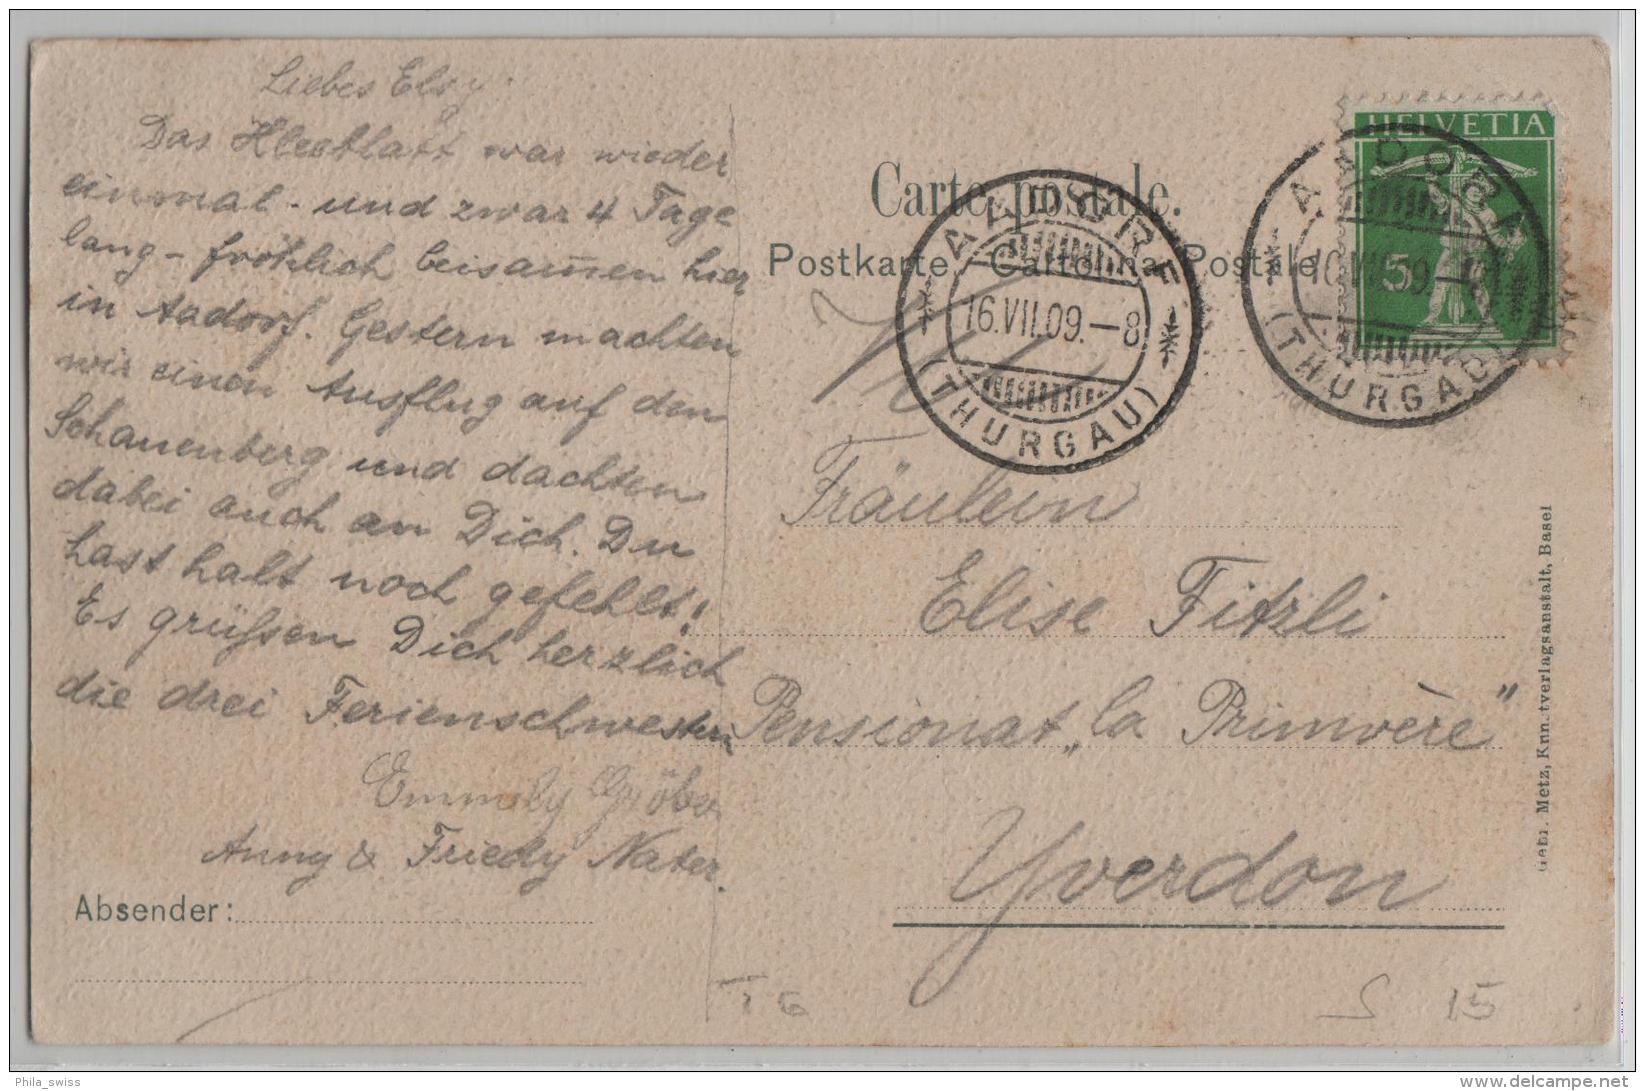 Liebes Elsy.
Das Kleeblatt war wieder
einmal - und zwar 4 Tage
lang - fröhlich beisam̅en hier
in Aadorf. Gestern machten
wir einen Ausflug auf den
Schauenberg und dachten
dabei auch an Dich. Du
hast halt noch gefehlt!
Es grüssen Dich herzlich
die drei Ferienschwestern
Emmely Gröber
Anny & Friedy Nater.
Absender:
Carte postale.
Postkarte Cartolina Postale
AADORF
16.VII.09.-8
(THURGAU)
HELVETIA
5
AADORF
16.VII.09.-8
(THURGAU)
Fräulein
Elise Fitzli
Pensionat „la Primvère"
Yverdon
Gebr. Metz, Kunstverlagsanstalt, Basel
S 15
Phila_swiss
delcampe.net